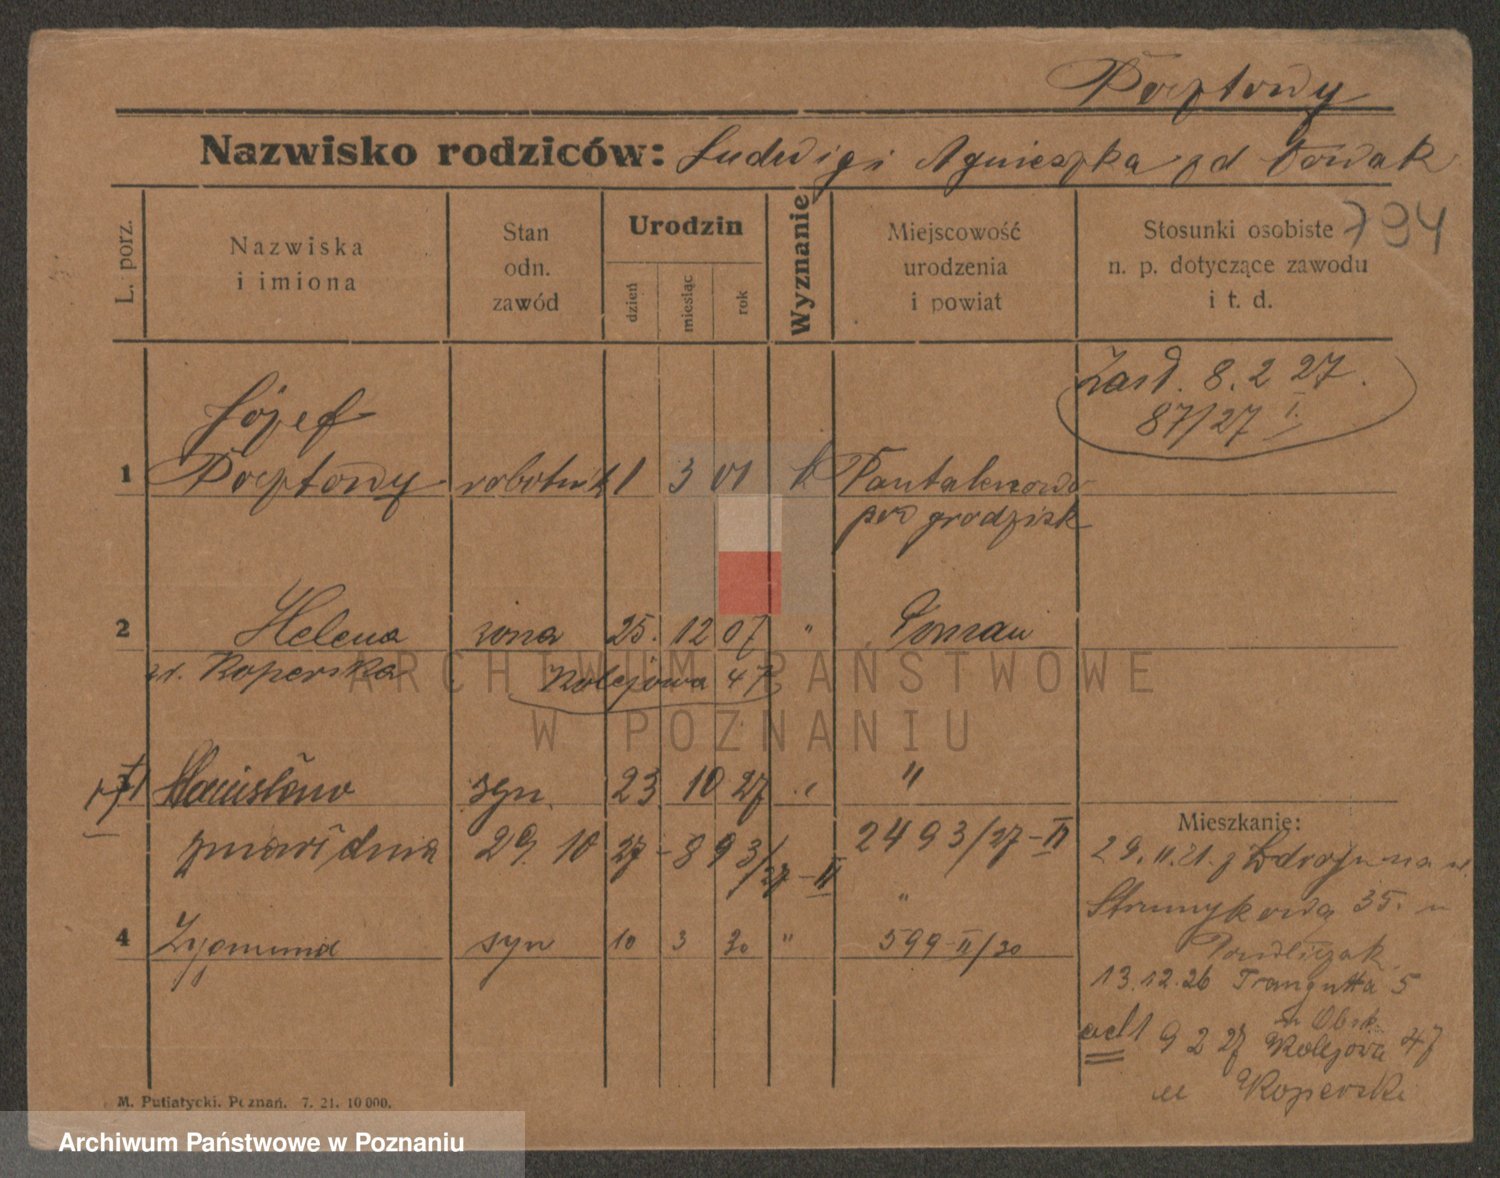 Pocztowy
Nazwisko rodziców: Ludwig i Agnieszka zd Nowak
L. porz.
Nazwiska
i imiona
Stan
odn.
zawód
Urodzin
dzień
miesiąc
rok
Wyznanie
Miejscowość
urodzenia
i powiat
Stosunki osobiste
n. p. dotyczące zawodu
i t. d.
794
8. 2 27.
87/27 I.
Józef
1 Pocztowy robotnik 1 3 01 k
pow grodzisk
2 Helena żona 25. 12 07 " Poznań
zd. Koperska Kolejowa 47
3 Stanisław syn. 23 10 27 " "
zmarł dnia 29. 10 27 - 893/27-II 2493/27-II
"
4 Zygmund syn 10 3 30 " 599-II/30
Mieszkanie:
29.11.21. z Zdroju na ul.
Strumykową 35.
13.12.26 Traugutta 5
9 2 27 Kolejowa 47
u Koperski
M. Putiatycki. Poznań. 7. 21. 10000.
ARCHIWUM PAŃSTWOWE
W POZNANIU
Archiwum Państwowe w Poznaniu